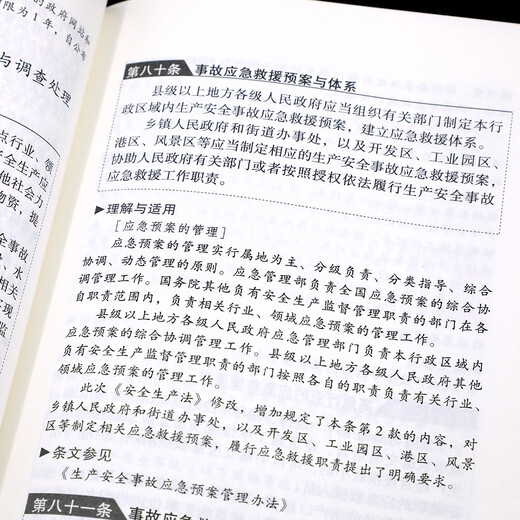 的政府网站和
限为1年，自公布
与调查处理
点行业、领
全生产应
他社会力
物资，提
全事故
水
相关
实现
监
第八十条 事故应急救援预案与体系
县级以上地方各级人民政府应当组织有关部门制定本行
政区域内生产安全事故应急救援预案，建立应急救援体系。
乡镇人民政府和街道办事处，以及开发区、工业园区、
港区、风景区等应当制定相应的生产安全事故应急救援预案，
协助人民政府有关部门或者按照授权依法履行生产安全事故
应急救援工作职责。
▶理解与适用
［应急预案的管理］
应急预案的管理实行属地为主、分级负责、分类指导、综合
协调、动态管理的原则。应急管理部负责全国应急预案的综合协
调管理工作。国务院其他负有安全生产监督管理职责的部门在各
自职责范围内，负责相关行业、领域应急预案的管理工作。
县级以上地方各级人民政府应急管理部门负责本行政区域内
应急预案的综合协调管理工作。县级以上地方各级人民政府其他
负有安全生产监督管理职责的部门按照各自的职责负责有关行业、
领域应急预案的管理工作。
此次《安全生产法》修改，增加规定了本条第2款的内容，对
乡镇人民政府和街道办事处，以及开发区、工业园区、港区、风景
区等制定相关应急救援预案，履行应急救援职责提出了明确要求。
▶条文参见
《生产安全事故应急预案管理办法》
第八十一条 事故应急